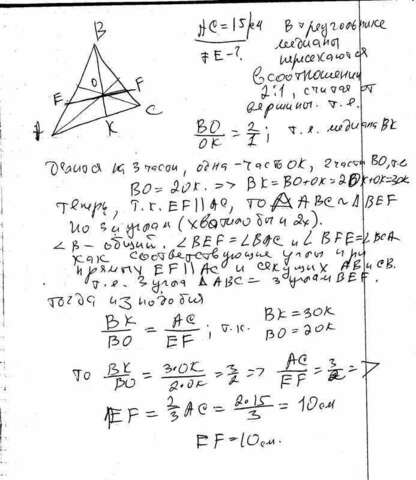 B
O
E
F
A
C
K
AC = 15 см
FE - ?
В треугольнике
медианы
пересекаются
в соотношении
2:1, считая от
вершины. т.е.
BO/OK = 2/1; т.е. медиана BK
делится на 3 части, одна - часть OK, 2 части BO, т.е.
BO = 2OK. => BK = BO + OK = 2OK + OK = 3OK
теперь, т.к. EF || AC, то △ABC ~ △BEF
по 3 углам (хватило бы и 2х).
∠B - общий. ∠BEF = ∠BAC и ∠BFE = ∠BCA
как соответствующие углы при
прямых EF || AC и секущих AB и CB.
т.е. 3 угла △ABC = 3 углам BEF.
тогда из подобия
BK/BO = AC/EF; т.к. BK = 3OK
BO = 2OK
то BK/BO = 3·OK/2·OK = 3/2 => AC/EF = 3/2 =>
EF = 2/3 AC = 2·15/3 = 10 см
EF = 10 см.